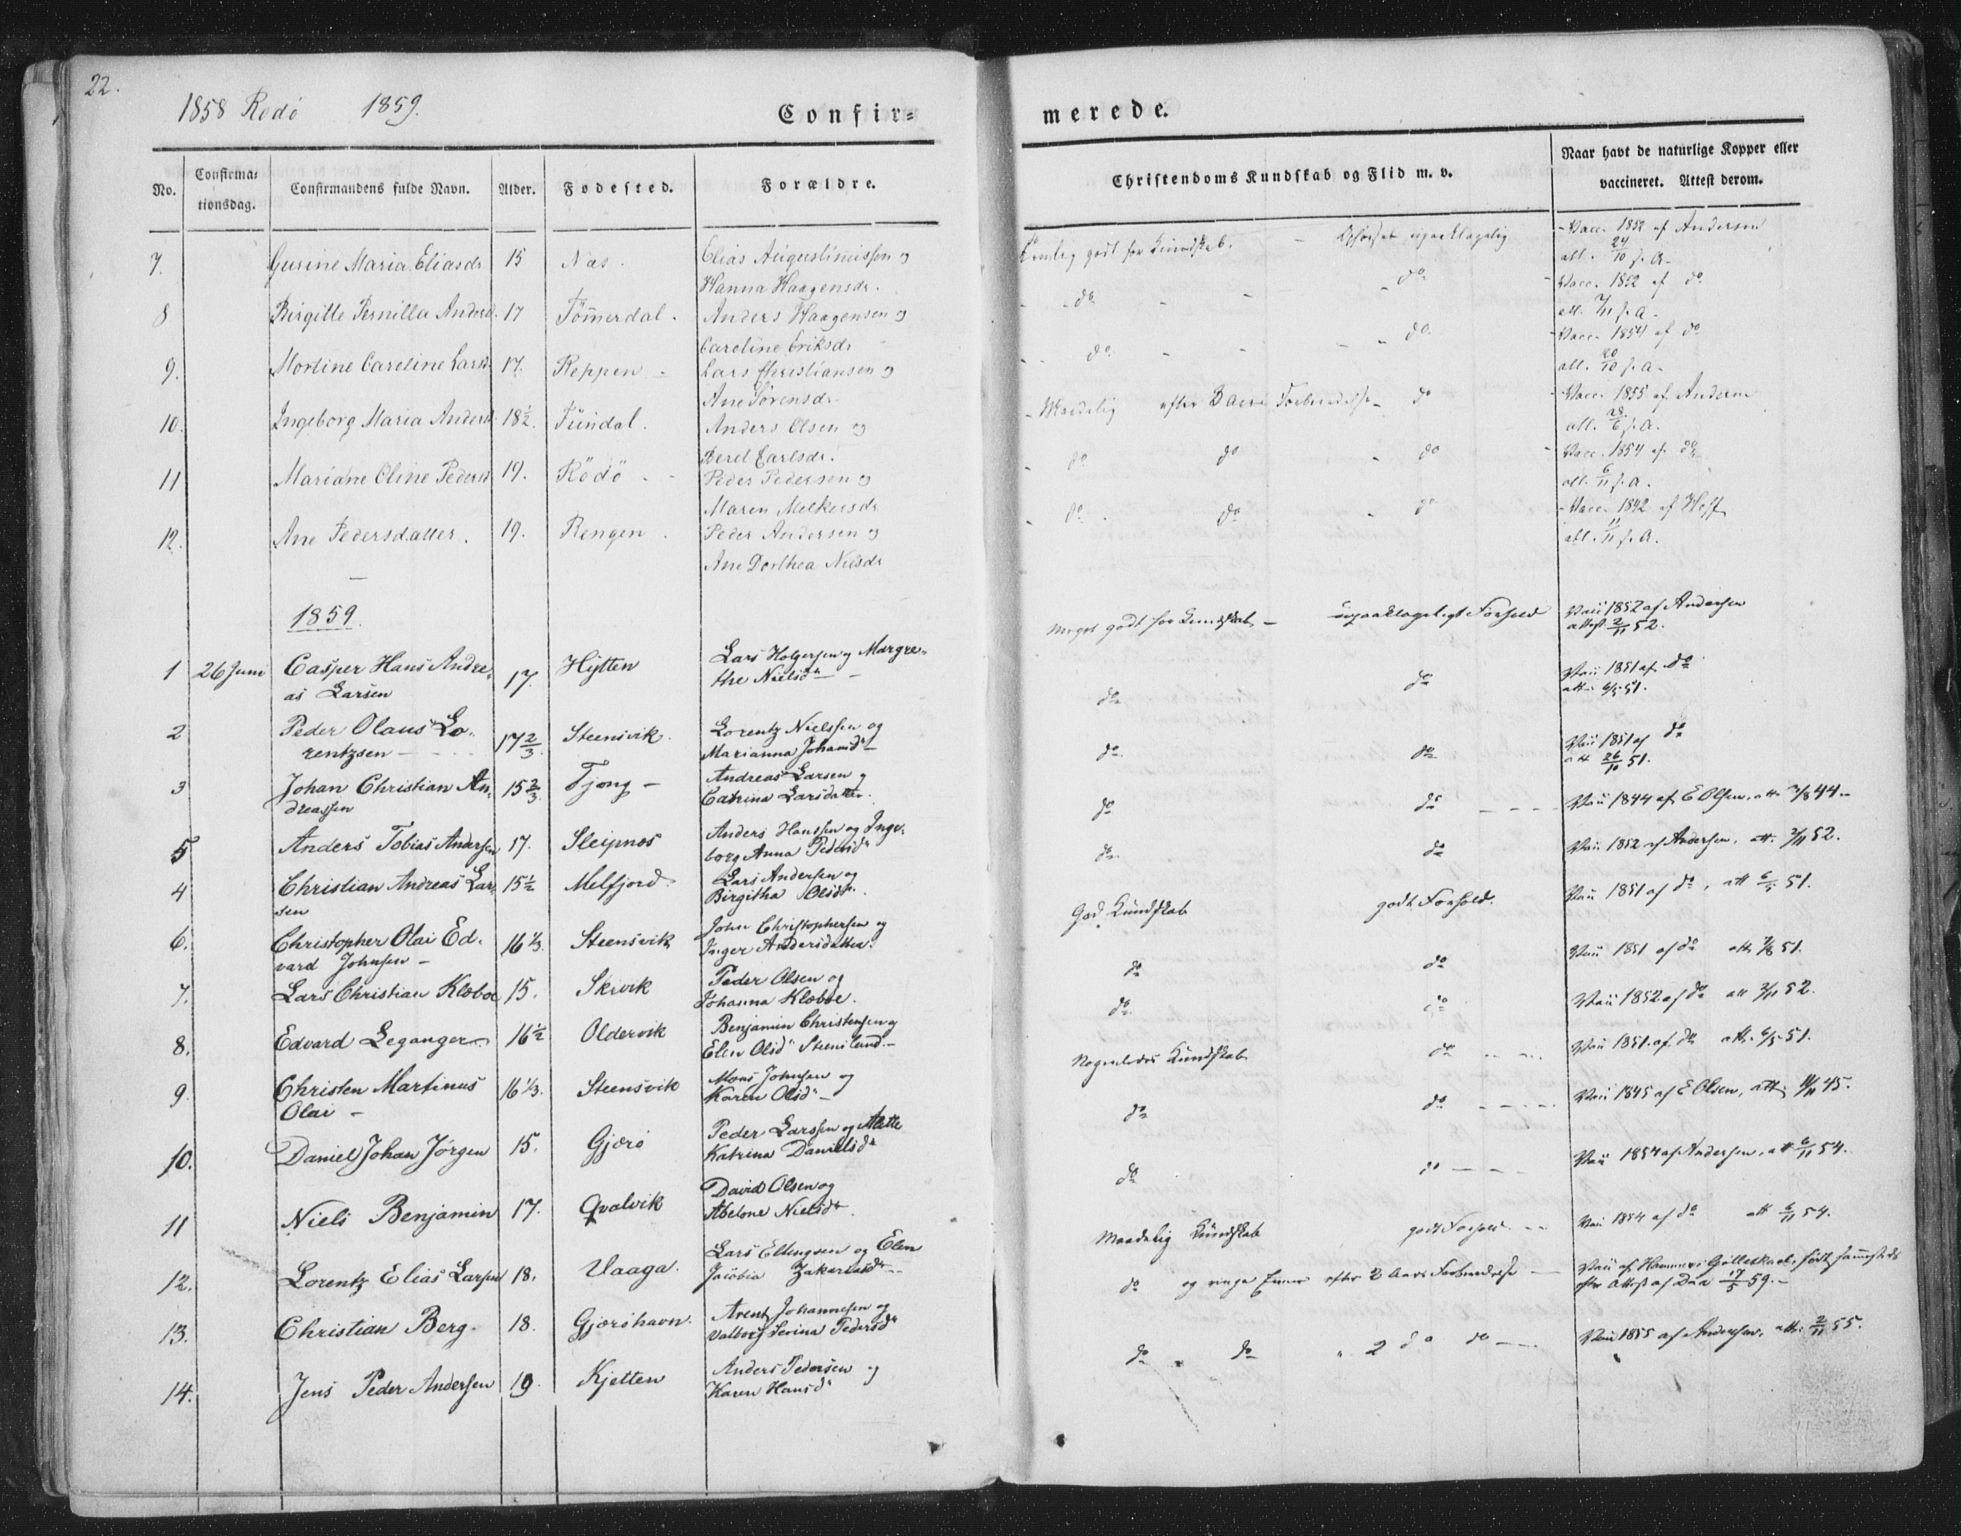 22.
1858 Rødø 1859.
Confir=
merede.
No.
Confirma=
tionsdag.
Confirmandens fulde Navn.
Alder.
Fødested.
Forældre.
Christendoms Kundskab og Flid m. v.
Naar havt de naturlige Kopper eller
vaccineret. Attest derom.
7. Gurine Maria Eliasdr 15 Næs. Elias Augustinussen og
Hanna Haagensdr.
godt for Kundskab. upaaklagelig
Vacc. 1852 af Andersen
att. 24/10 s. A.
8 Birgitte Pernilla Andersd. 17 Tømmerdal. Anders Haagensen og
Caroline Eriksdr
do do
Vacc. 1852 af do
att. 7/11 s. A.
9. Martine Caroline Larsd 17. Reppen Lars Christiansen og
Ane Sørensdr
do. do.
Vacc. 1854 af do
att. 20/10 s. A.
10. Ingeborg Maria Andersd 18½. Anders Olsen og
Beret Carlsdr.
Maadelig efter 2 Aars Forberedelse do
Vacc. 1855 af Andersen
att. 28/6 s. A.
11 Mariane Oline Pedersd 19. Rödö Peder Pedersen og
Maren Melkersdr
do do do
Vacc. 1854 af do
att. 6/11 s. A.
12. Ane Pedersdatter. 19. Rengen. Peder Andersen og
Ane Dorthea Nilsdr
do do do
Vacc. 1842 af Hoff
att. 11/11 s. A.
1859.
1 26 Juni Casper Hans Andre=
as Larsen 17. Hytten Lars Holgersen og Margre=
the Nielsdr
Meget godt for Kundskab upaaklageligt Forhold
Vacc 1852 af Andersen
attest 2/11 52.
2 Peder Olaus Lo=
rentzsen 17 2/3. Steensvik. Lorentz Nielssen og
Marianna Johansdr
do do
Vacc 1851 af do
att. 6/5 51.
3 Johan Christian An=
dreassen 15 2/3. Tjong Andreas Larsen og
Catrina Larsdatter.
do. do
Vacc 1851 af do
att 26/10 51.
5 Anders Tobias Andersen 17. Sleipnes Anders Hanssen og Inge=
borg Anna Pedersdr
do do
Vacc 1844 af E Olsen, att. 7/8 44.
4 Christian Andreas Lar=
sen 15½ Melfjord. Lars Andersen og
Birgitha Olsdr.
do. do
Vacc 1852 af Andersen, att. 2/11 52.
6. Christopher Olai Ed=
vard Johnsen 16 1/3. Steensvik John Christophersen og
Inger Andersdatter.
God Kundskab godt Forhold.
Vacc 1851 af do, att 6/5 51.
7. Lars Christian Kloboe 15. Skivik Peder Olsen og
Johanna Kloboe.
do do
Vacc 1851 af do att 7/8 51.
8. Edvard Leganger 16½ Oldervik Benjamin Christensen og
Elen Olsdr Steensland.
do do
Vacc 1852 af do att 2/11 52.
9. Christen Martinus
Olai 16 1/3. Steensvik Mons Johnsen og
Karen Olsdr
Nogenledes Kundskab do
Vacc 1851 af do att. 6/5 51.
10. Daniel Johan Jørgen 15. Gjærø Peder Larssen og Mette
Katrina Danielsdr
do do
Vacc 1845 af E Olsen, att. 11/11 45.
11 Niels Benjamin 17. Qvalvik David Olsen og
Abelone Nielsdr.
do do
Vacc 1854 af Andersen, att 6/11 54.
12. Lorentz Elias Larsen 18. Vaaga. Lars Eltingsen og Elen
Jacobia Zakariasdr
Maadelig Kundskab godt Forhold.
Vacc 1854 af do att 6/11 54.
13. Christian Berg. 18. Gjærøhavn. Arent Johannesen og
Valborg Serina Pedersdr
do og ringe Evner efter 2 Aars Forberedelse
Vacc af Hammer født sammesteds
efter Attest af Daa 17/5 59.
14. Jens Peder Andersen 19. Kjetten Anders Pedersen og
Karen Hansdr
do do 2 do do
Vacc 1855 af Andersen, att. 2/11 55.